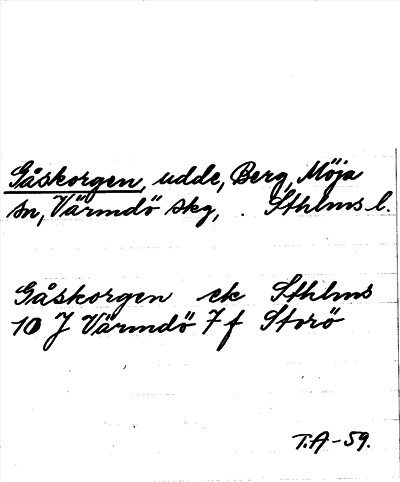 Gåskorgen, udde, Berg, Möja
sn, Värmdö skg, . Sthlms l.
Gåskorgen ek Sthlms
10 J Värmdö 7 f Storö
T.A-59.